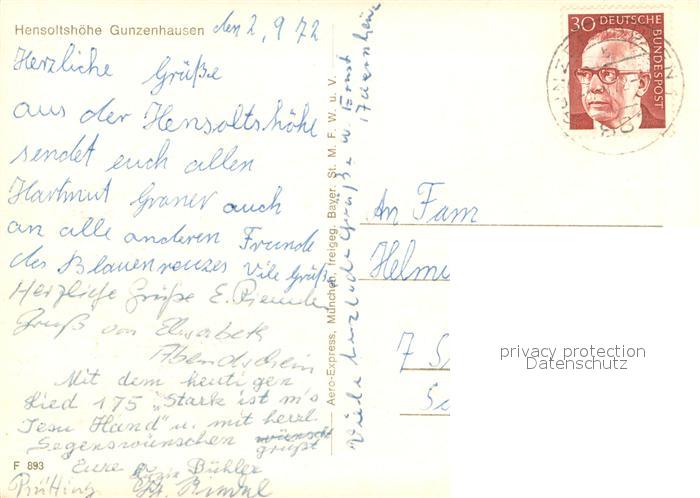 Hensoltshöhe Gunzenhausen den 2.9.72
Herzliche Grüße
aus der Hensoltshöhe
sendet euch allen
Hartmut Graner auch
an alle anderen Freunde
des Blauenreuzes Vile Grüße
Herzliche Grüße E.
Gruß von Elisabeth
Abendschein
Mit dem heutigen
Lied 175 "Stark ist m's
Jesu Hand" u. mit herzl.
Segenswünschen wünscht
grüßt
Eure Bühler
F 893
Aero-Express, München, freigeg. Bayer. St. M. F. W. u. V.
Viele herzliche Grüße u. Ernst
30 DEUTSCHE
BUNDESPOST
An Fam
Helmu
7 S
privacy protection
Datenschutz